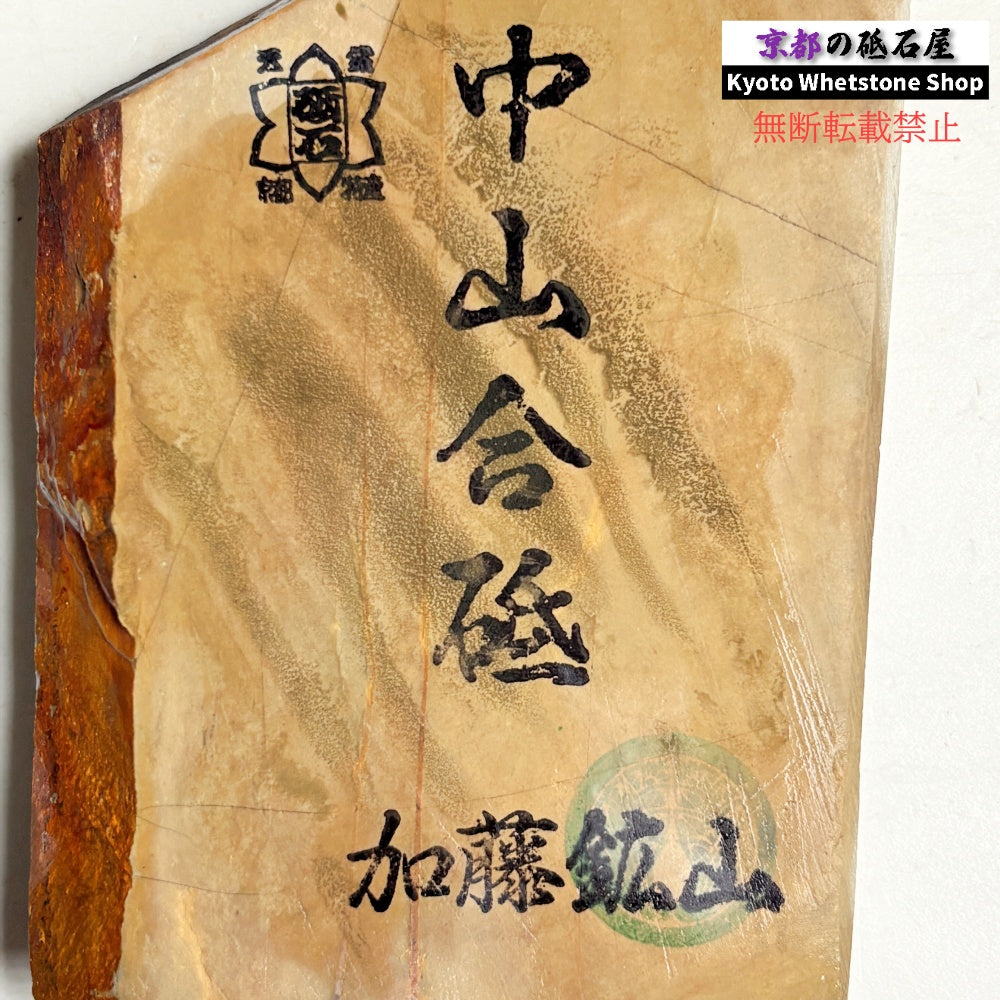 京都の砥石屋
Kyoto Whetstone Shop
無断転載禁止
中山合砥
天然
砥石
京都
加藤鉱山